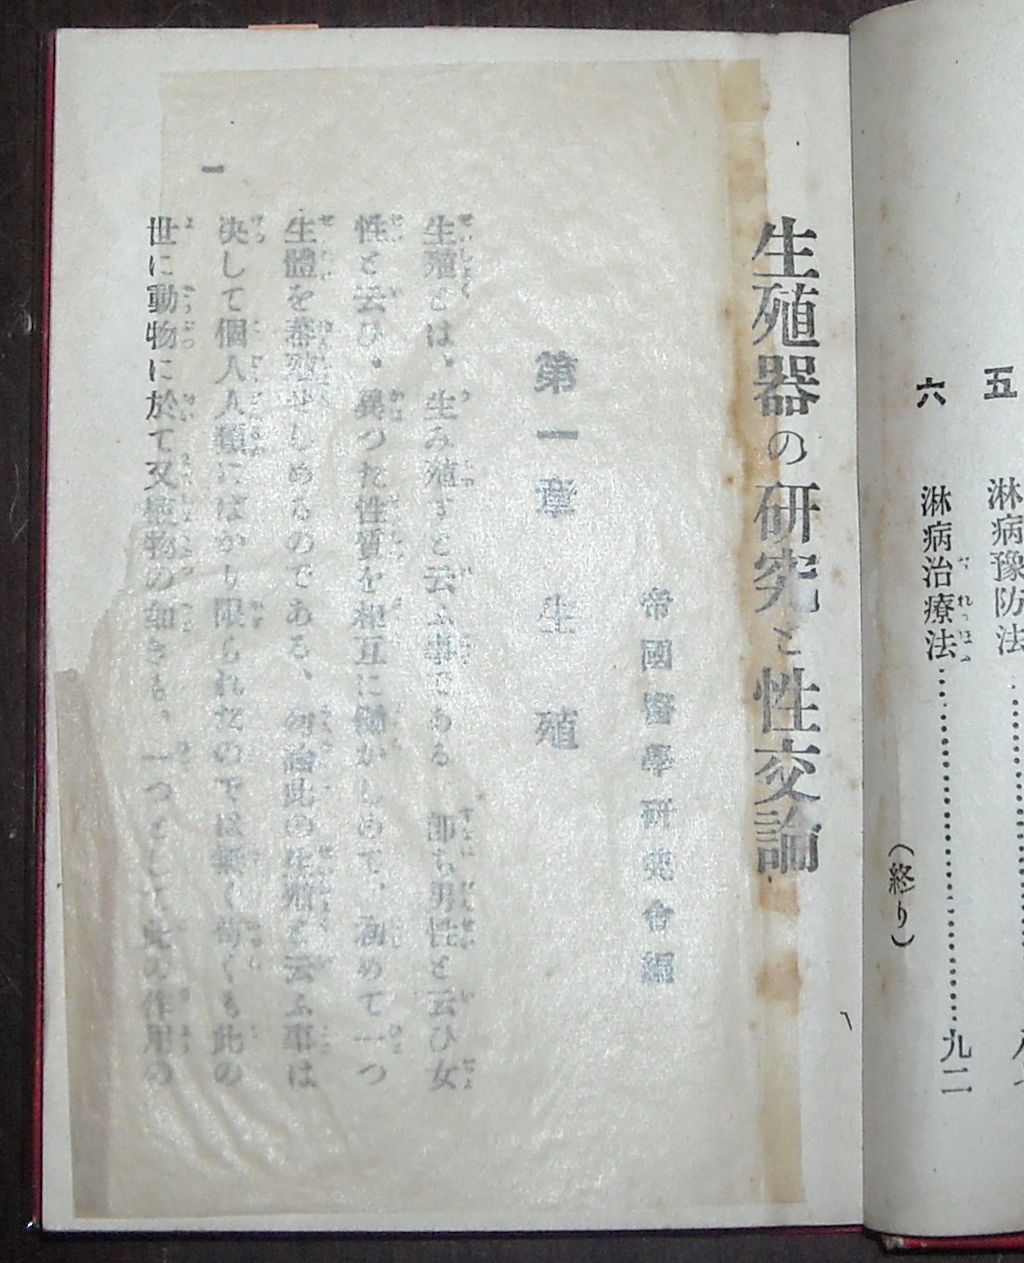 五 淋病豫防法
六 淋病治療法 九二
(終り)
生殖器の研究と性交論
帝國醫學研究會編
第一章 生殖
生殖とは、生み殖すと云ふ事である、即ち男性と云ひ女
性と云ひ、異つた性質を相互に働かしめて、初めて一つ
生體を蕃殖せしめるのである、勿論此の生殖と云ふ事は
決して個人人類にばかり限られたのでは無く苟くも此の
世に動物に於て又植物の如きも、一つとして此の作用の
一